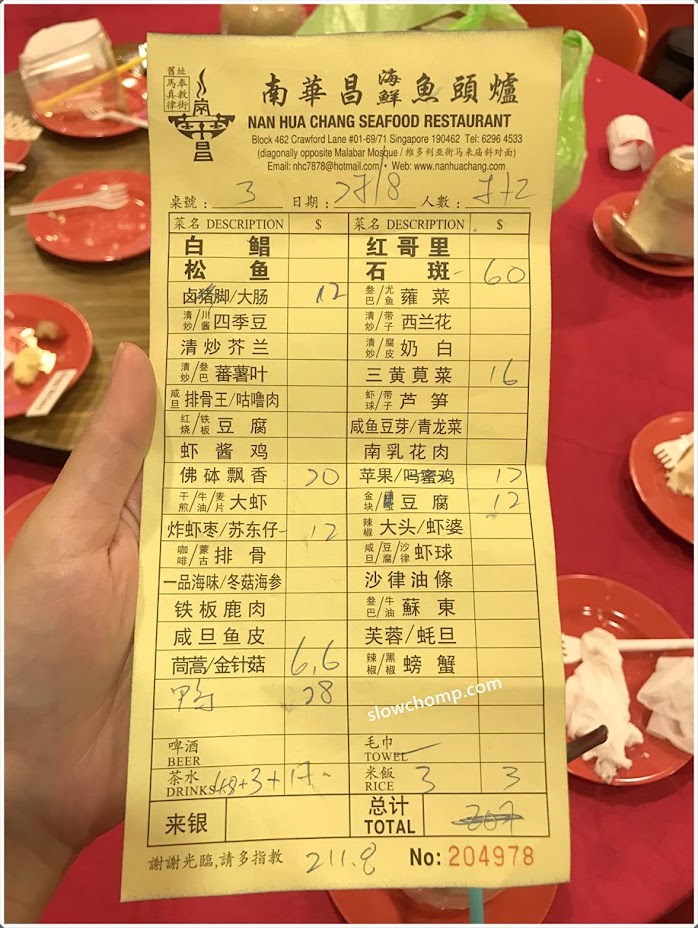 舊址奉教街馬真律
南華昌海鮮魚頭爐
南華昌
NAN HUA CHANG SEAFOOD RESTAURANT
Block 462 Crawford Lane #01-69/71 Singapore 190462 Tel: 6296 4533
(diagonally opposite Malabar Mosque / 维多利亚街马来庙斜对面)
Email: nhc7878@hotmail.com • Web: www.nanhuachang.com
桌號: 3 日期: 人數:
菜名 DESCRIPTION $ 菜名 DESCRIPTION $
白鲳 红哥里
松鱼 石斑 60
卤猪脚/大肠 12 叁巴/尤鱼 蕹菜
清炒/川酱 四季豆 清炒/带子 西兰花
清炒芥兰 清炒/腐皮 奶白
清炒/叁巴 蕃薯叶 三黄莧菜 16
咸旦 排骨王/咕噜肉 虾球/带子 芦笋
红烧/铁板 豆腐 咸鱼豆芽/青龙菜
虾酱鸡 南乳花肉
佛砵飘香 20 苹果/吗蜜鸡
干煎/牛油/麦片 大虾 金块 豆腐 12
炸虾枣/苏东仔 12 辣椒 大头/虾婆
咖啡/蒙古 排骨 咸旦/豆腐/沙律 虾球
一品海味/冬菇海参 沙律油條
铁板鹿肉 叁巴/牛油 蘇東
咸旦鱼皮 芙蓉/蚝旦
茼蒿/金针菇 6,6 辣椒/黑椒 螃蟹
鸭 28
slowchomp.com
啤酒 BEER 毛巾 TOWEL
茶水 DRINKS 米飯 RICE 3 3
来银 总计 TOTAL 207
謝謝光臨,請多指教 211.8 No: 204978